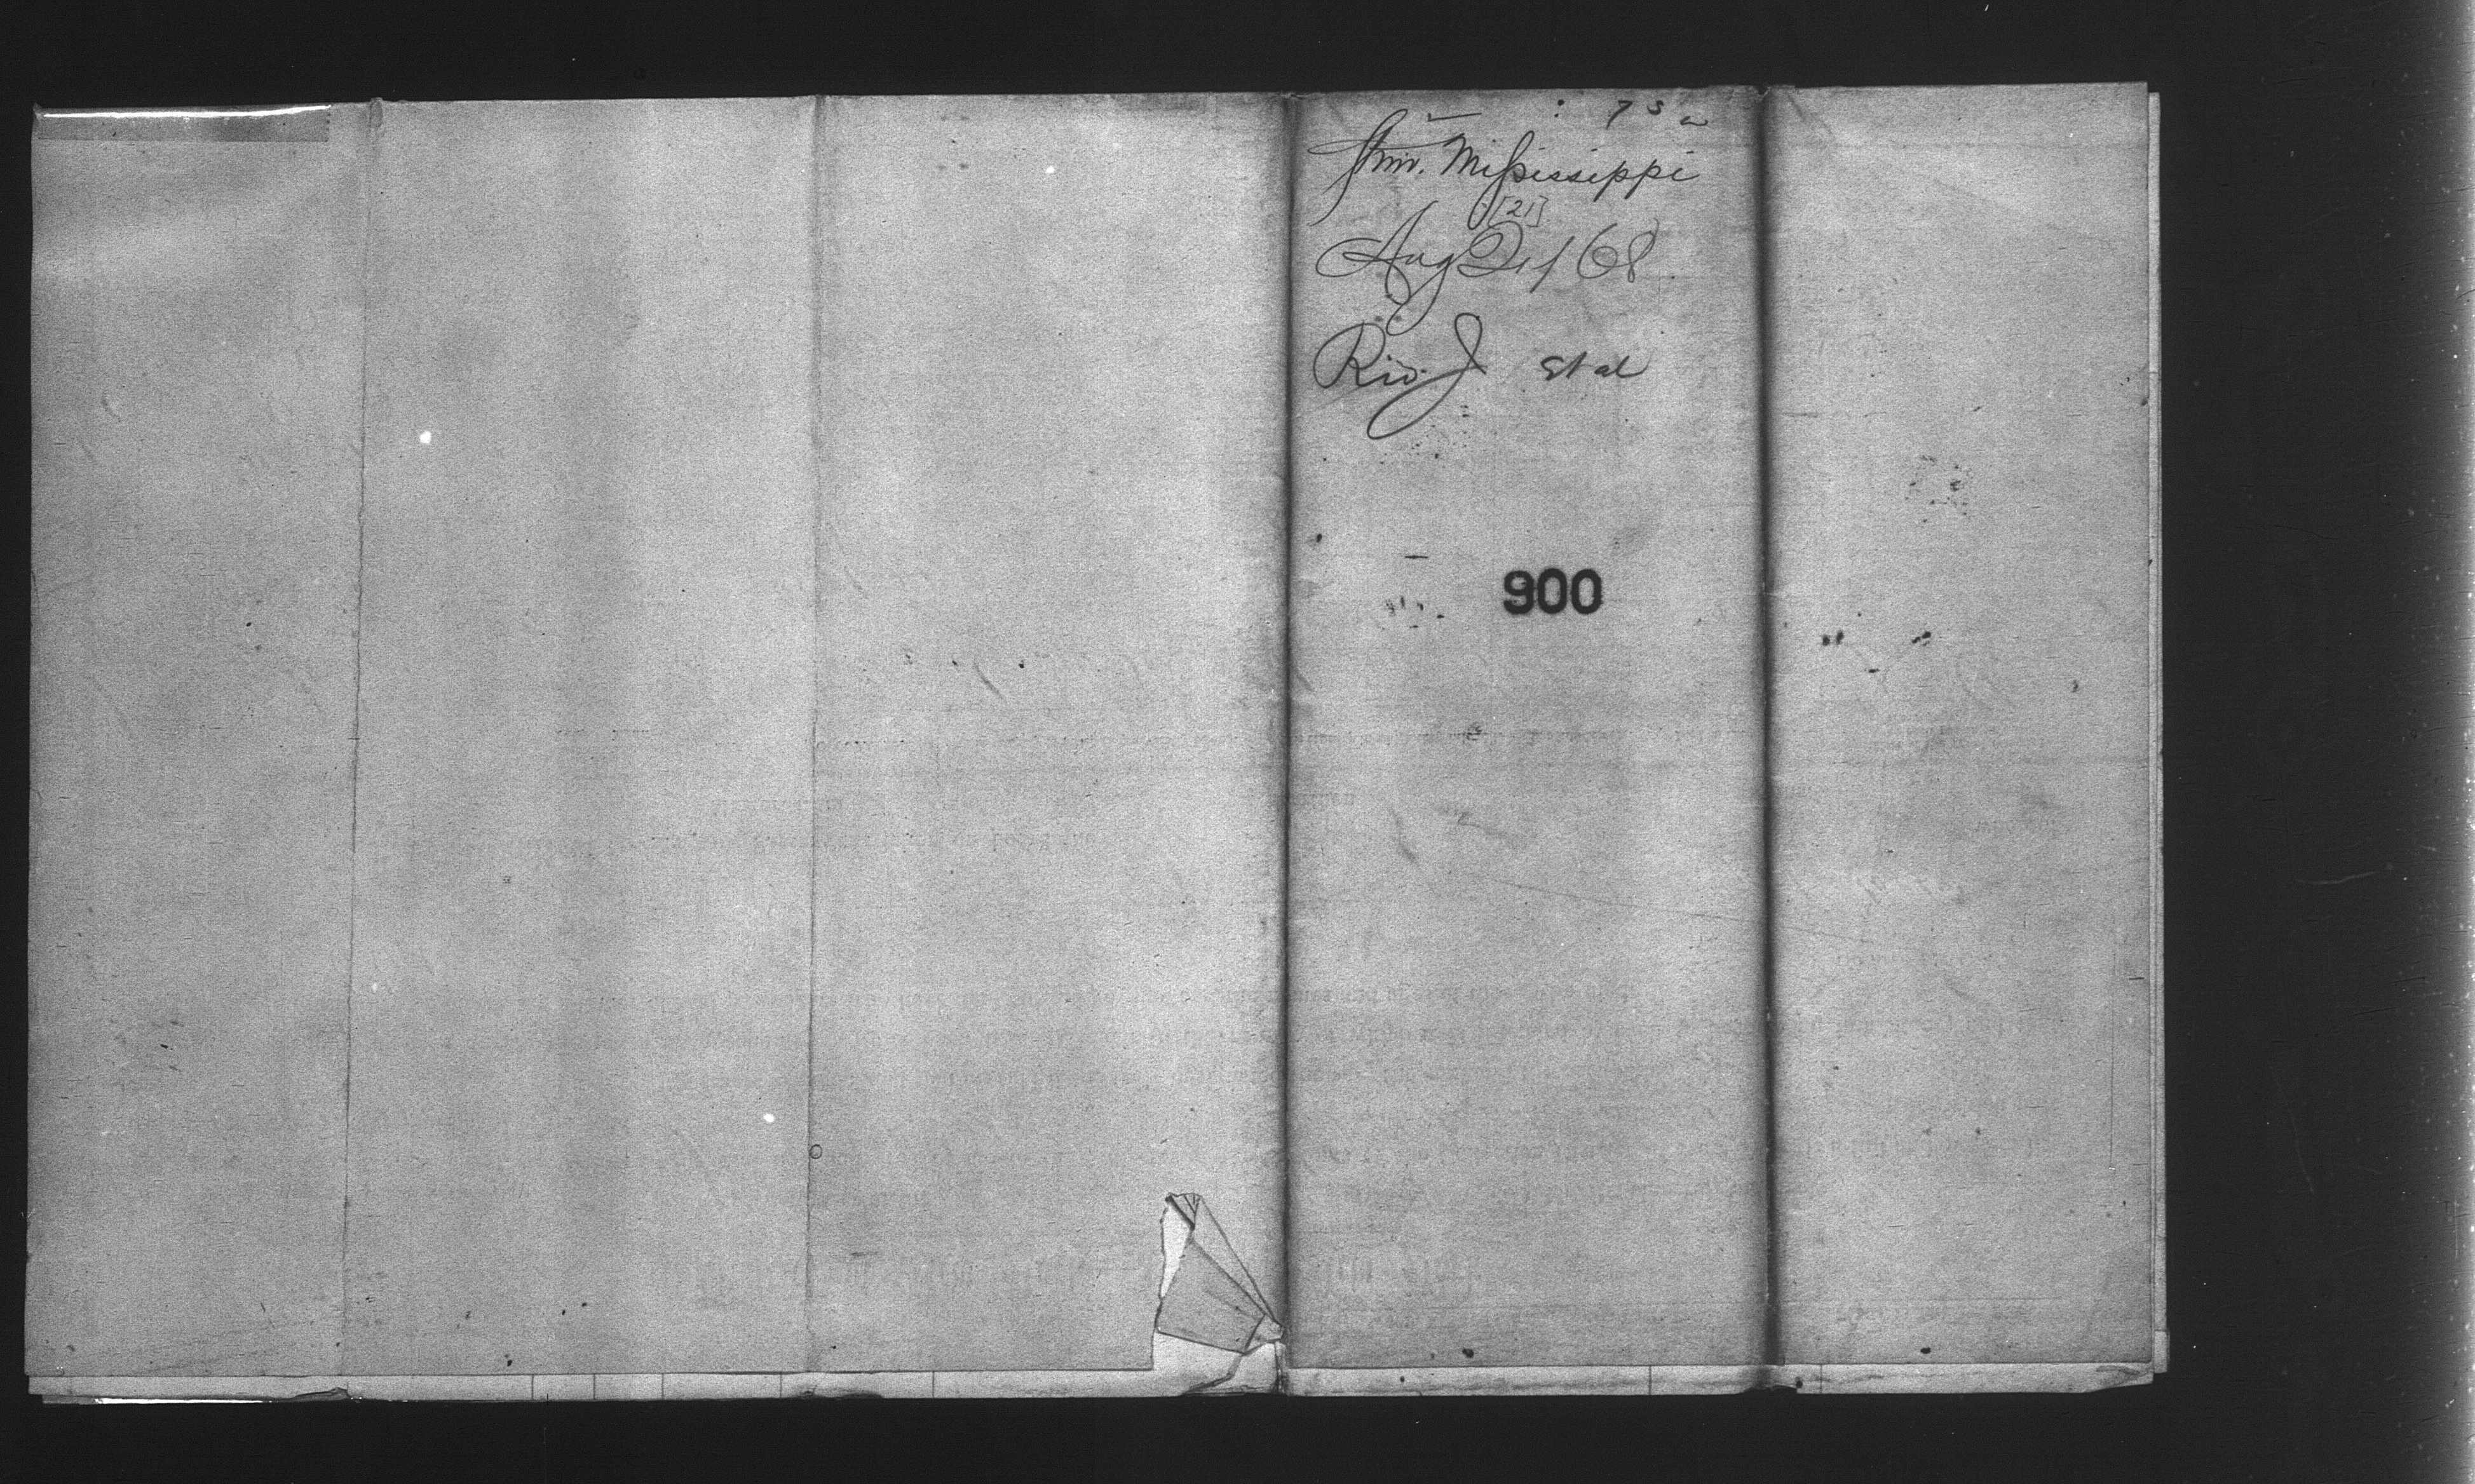 Stmr. Mississippi
[21]
Aug 21/68
Rio J et al
900